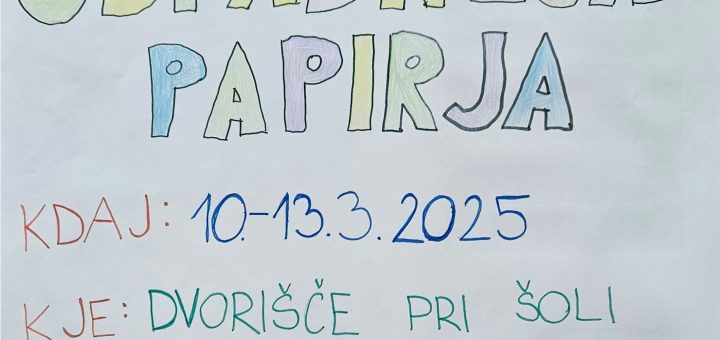 ODPADNEGA
PAPIRJA
KDAJ: 10.-13.3.2025
KJE: DVORIŠČE PRI ŠOLI